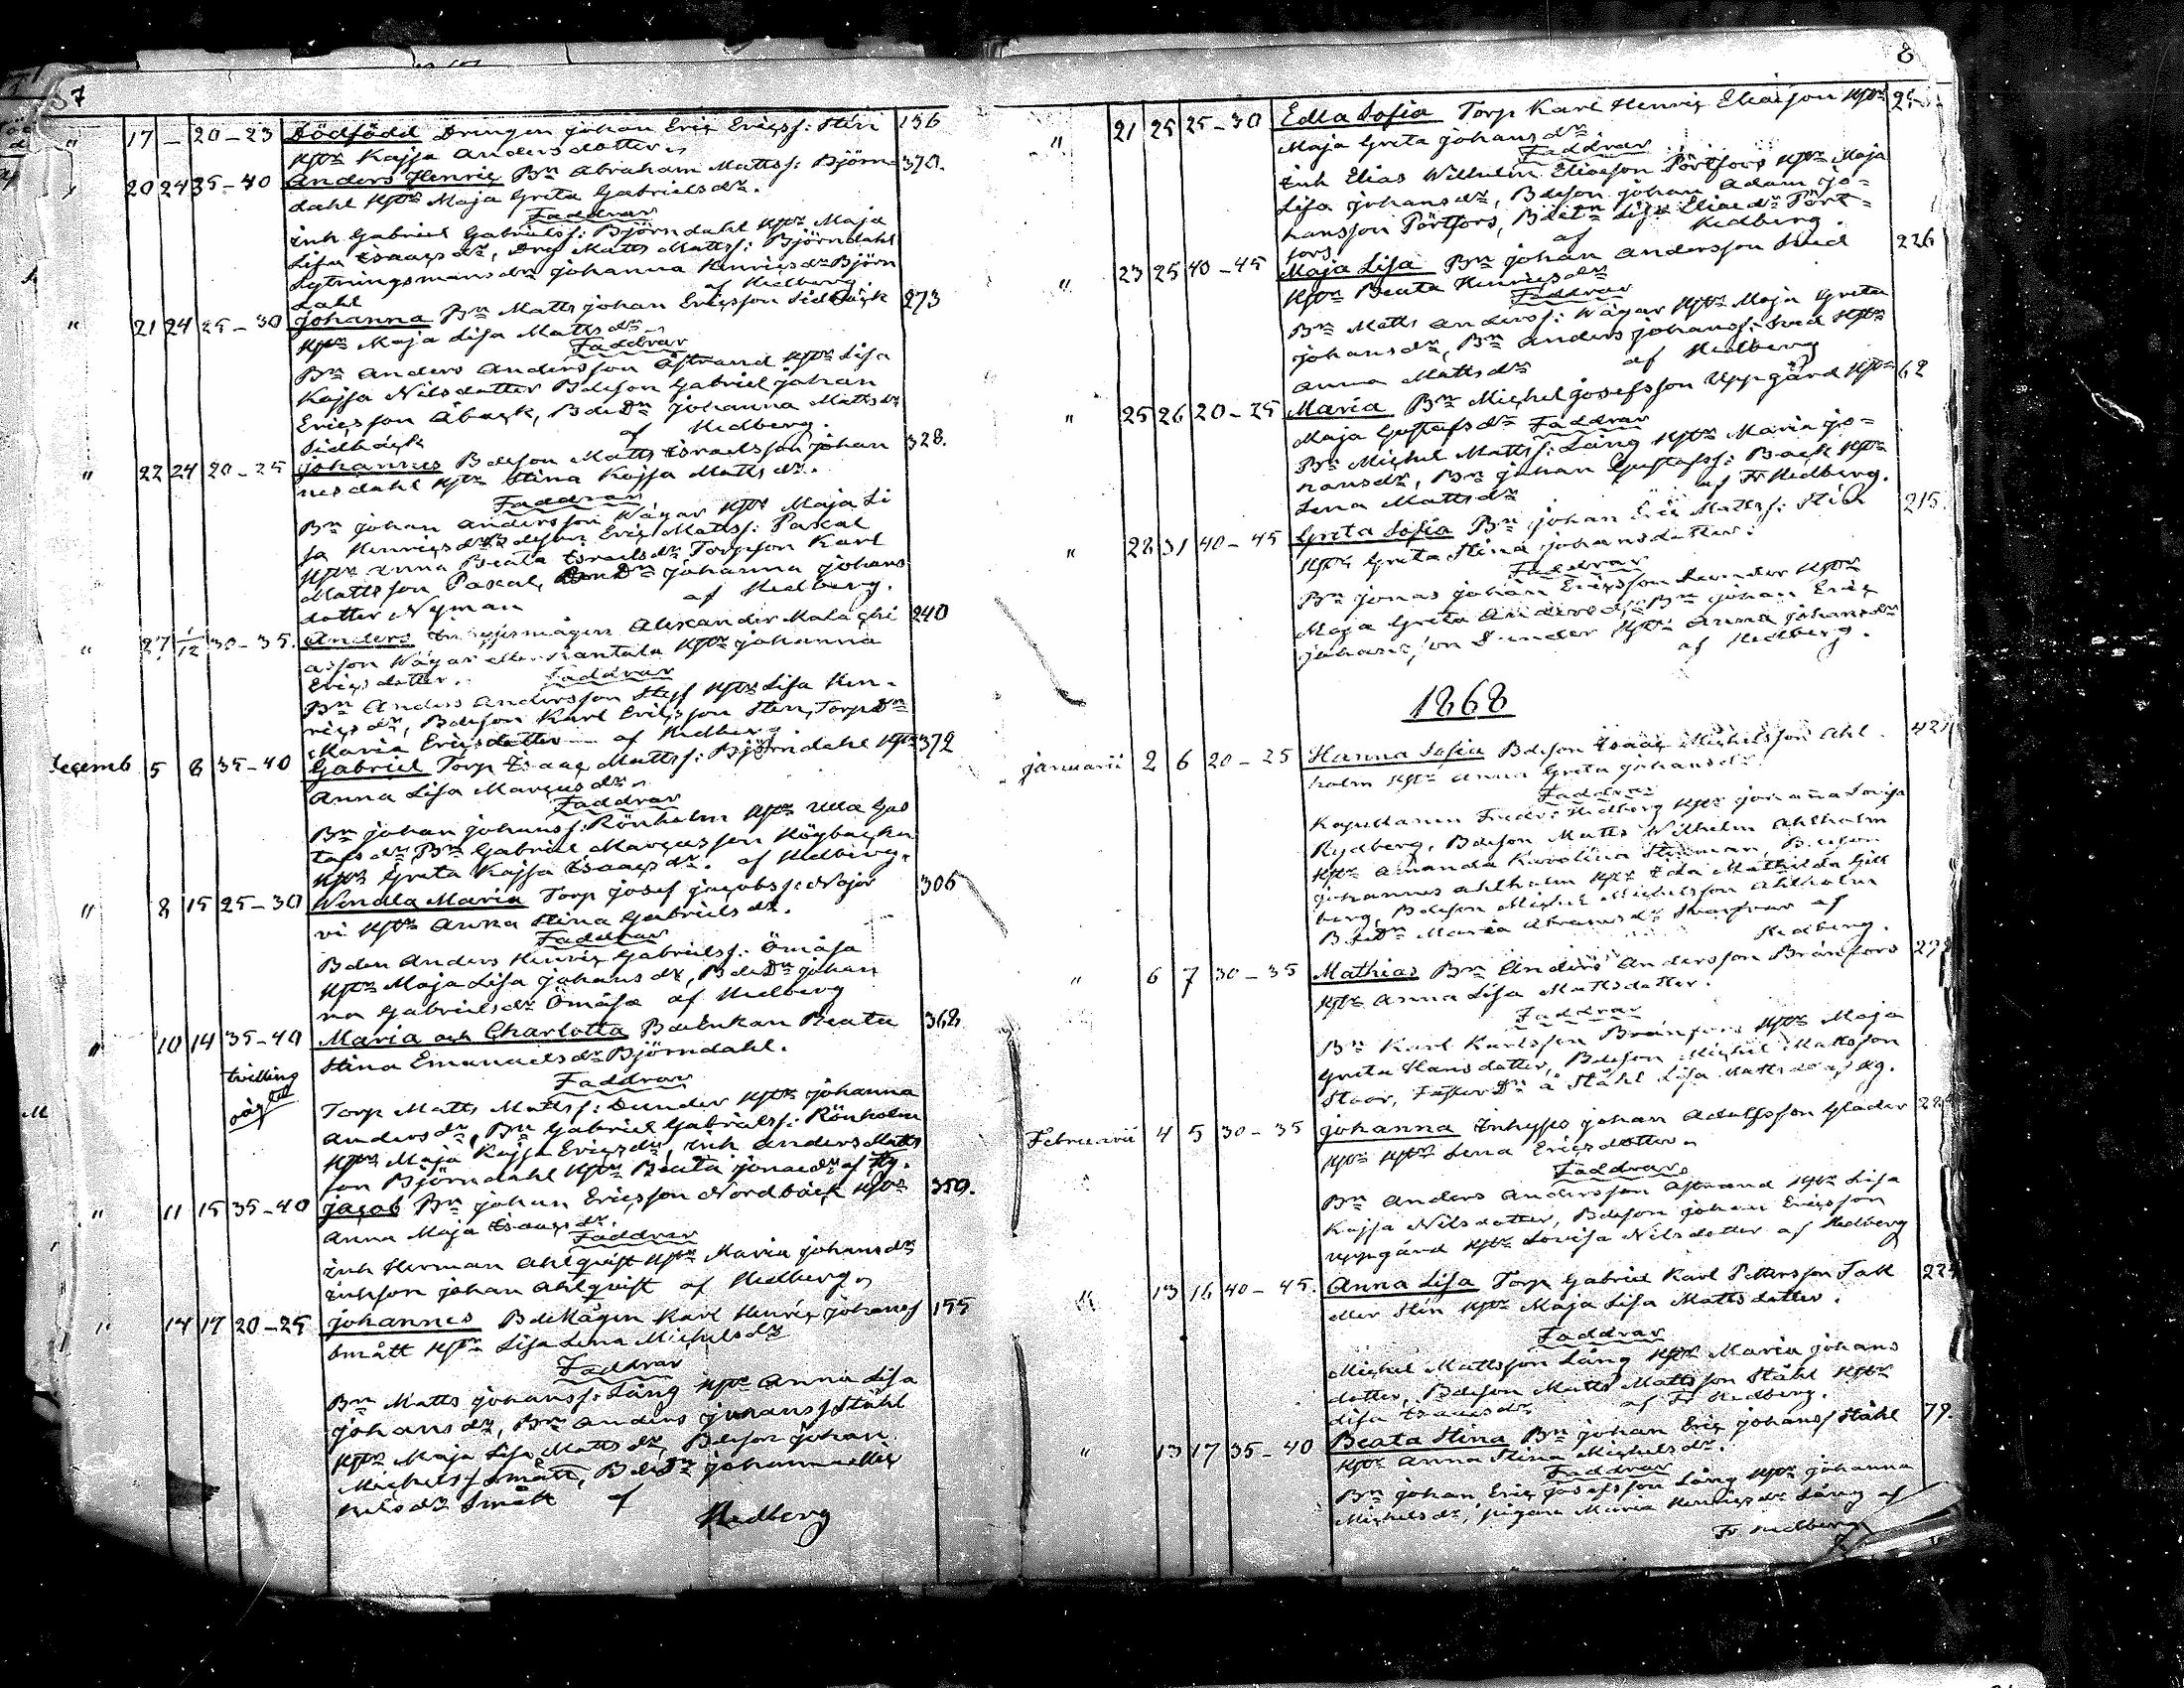 37
" 17 — 20-23 Dödfödd Drängen Johan Eric Ericss: Sten 136
Hstr Kajsa Andersdotter
" 20 24 35-40 Anders Henric Bn Abraham Mattss: Björn- 370.
dahl Hstr Maja Greta Gabrielsdr.
Faddrar
Inh Gabriel Gabrielss: Björndahl Hstr Maja
Lisa Isaacsdr, Drg Matts Mattss: Björndahl
Johanna Henricsdr Björn
dahl af Hedberg.
" 21 24 25-30 Johanna Bn Matts Johan Ericsson Sidbäck 273
Hstr Maja Lisa Mattsdr
Faddrar
Bn Anders Andersson Åstrand Hstr Lisa
Kajsa Nilsdotter Bdeson Gabriel Johan
Ericsson Åback, BdeDr Johanna Mattsdr
Sidbäck af Hedberg.
" 22 24 20-25 Johannes Bdeson Matts Israelsson Johan 328.
nesdahl Hstr Stina Kajsa Mattsdr.
Faddrar
Bn Johan Andersson Wägar Hstr Maja Li
sa Henricsdr Bdeson Eric Mattss: Paxal
Hstr Anna Beata Israelsdr Torpson Karl
Mattsson Paxal, Dr Johanna Johans
dotter Nyman af Hedberg.
" 27 1/12 30-35. Anders Inhysesmågen Alexander Malachi 240
asson Wägar eller Rantala Hstr Johanna
Ericsdotter. Faddrar
Bn Anders Andersson Hstr Lisa Hen-
ricsdr, Bdeson Karl Ericsson Sten, TorpDr
Maria Ericsdotter — af Hedberg
Decemb 5 8 35-40 Gabriel Torp Isaac Mattss: Björndahl Hstr 372
Anna Lisa Marcusdr
Faddrar
Bn Johan Johanss: Rönholm Hstr Ulla Gus
tafsdr Bn Gabriel Marcusson Högbacka
Hstr Greta Kajsa Isaacsdr. af Hedberg.
" 8 15 25-30 Wendla Maria Torp Josef Jacobs: Najär 306
vi Hstr Anna Stina Gabrielsdr.
Faddrar
Bden Anders Henric Gabrielss: Ömåsa
Hstr Maja Lisa Johansdr, BdeDr Johan
na Gabrielsdr Ömåsa af Hedberg
" 10 14 35-40 Maria och Charlotta BdeEnkan Beata 368
Stina Emanuelsdr Björndahl.
tvilling
Faddrar
Torp Matts Mattss: Dunder Hstr Johanna
Andersdr, Bn Gabriel Gabrielss: Rönholm
Hstr Maja Kajsa Ericsdr, Inh Anders Matts
son Björndahl Hstr Beata Jonaedr af Hg.
" 11 15 35-40 Jacob Bn Johan Ericsson Nordbäck Hstr 350.
Anna Maja Isaacsdr.
Faddrar
Inh Herman Ahlqvist Hstr Maria Johansdr
Inhson Johan Ahlqvist af Hedberg
" 14 17 20-25 Johannes BdeMågen Karl Henric Johanss 155
Smått Hstr Lisa Lena Michelsdr
Faddrar
Bn Matts Johanss: Lång Hstr Anna Lisa
Johansdr, Bn Anders Johanss Ståhl
Hstr Maja Lisa Mattsdr, Bdeson Johan
Michelss Smått, BdeDr Johanna Mic
helsdr Smått af
Hedberg
8
" 21 25 25-30 Edla Sofia Torp Karl Henric Eliasson Hstr
Maja Greta Johansdr
Faddrar
Inh Elias Wilhelm Eliasson Pörtfors Hstr Maja
Lisa Johansdr, Bdeson Johan Adam Jo-
hansson Pörtfors, BdeDr Lisa Eliaedr Pört-
fors af Hedberg.
" 23 25 40-45 Maja Lisa Bn Johan Andersson Svid 226
Hstr Beata Henricsdr
Faddrar
Bn Matts Anderss: Wägar Hstr Maja Greta
Johansdr, Bn Anders Johanss: Svid Hstr
Anna Mattsdr af Hedberg
" 25 26 20-25 Maria Bn Michel Josefsson Uppgård Hstr 62
Maja Gustafsdr Faddrar
Bn Michel Mattss: Lång Hstr Maria Jo-
hansdr, Bn Johan Gustafss: Back Hstr
Lena Mattsdr af Fr Hedberg.
" 28 31 40-45 Greta Sofia Bn Johan Eric Mattss: Sten 215.
Hstr Greta Stina Johansdotter.
Faddrar
Bn Jonas Johan Ericsson Dunder Hstr
Maja Greta Andersdr Bn Johan Eric
Johansson Dunder Hstr Anna Johansdr
af Hedberg.
1868
Januarii 2 6 20-25 Hanna Sofia Bdeson Isaac Michelsson Ahl-
holm Hstr Anna Greta Johansdr
Faddrar
Kapellanen Fredr: Hedberg Hstr Johanna Lovisa
Rydberg, Bdeson Matts Wilhelm Ahlholm
Hstr Amanda Karolina Stenman, Bdeson
Johannes Ahlholm Hstr Ida Mathilda Gill
berg, Bdeson Michel Michelsson Ahlholm
BdeDr Maria Abramsdr af
Hedberg.
" 6 7 30-35 Mathias Bn Anders Andersson Brännfors
Hstr Anna Lisa Mattsdotter.
Faddrar
Bn Karl Karlsson Brännfors Hstr Maja
Greta Hansdotter, Bdeson Michel Mattsson
Staar, Dr å Ståhl Lisa Mattsdr af Hg.
Februarii 4 5 30-35 Johanna Inhyses Johan Adolfsson Glader
Hstr Hstr Lena Ericsdotter
Faddrar
Bn Anders Andersson Åstrand Hstr Lisa
Kajsa Nilsdotter, Bdeson Johan Ericsson
Uppgård Hstr Lovisa Nilsdotter af Hedberg
" 13 16 40-45. Anna Lisa Torp Gabriel Karl Pettersson Tall
eller Sten Hstr Maja Lisa Mattsdotter.
Faddrar
Michel Mattsson Lång Hstr Maria Johans
dotter, Bdeson Matts Mattsson Ståhl Hstr
Lisa Isaacsdr af Fr Hedberg.
" 13 17 35-40 Beata Stina Bn Johan Eric Johanss Ståhl 79.
Hstr Anna Stina Michelsdr.
Faddrar
Bn Johan Eric Josefsson Lång Hstr Johanna
Michelsdr, pigan Maria Henricsdr Lång af
Fr Hedberg